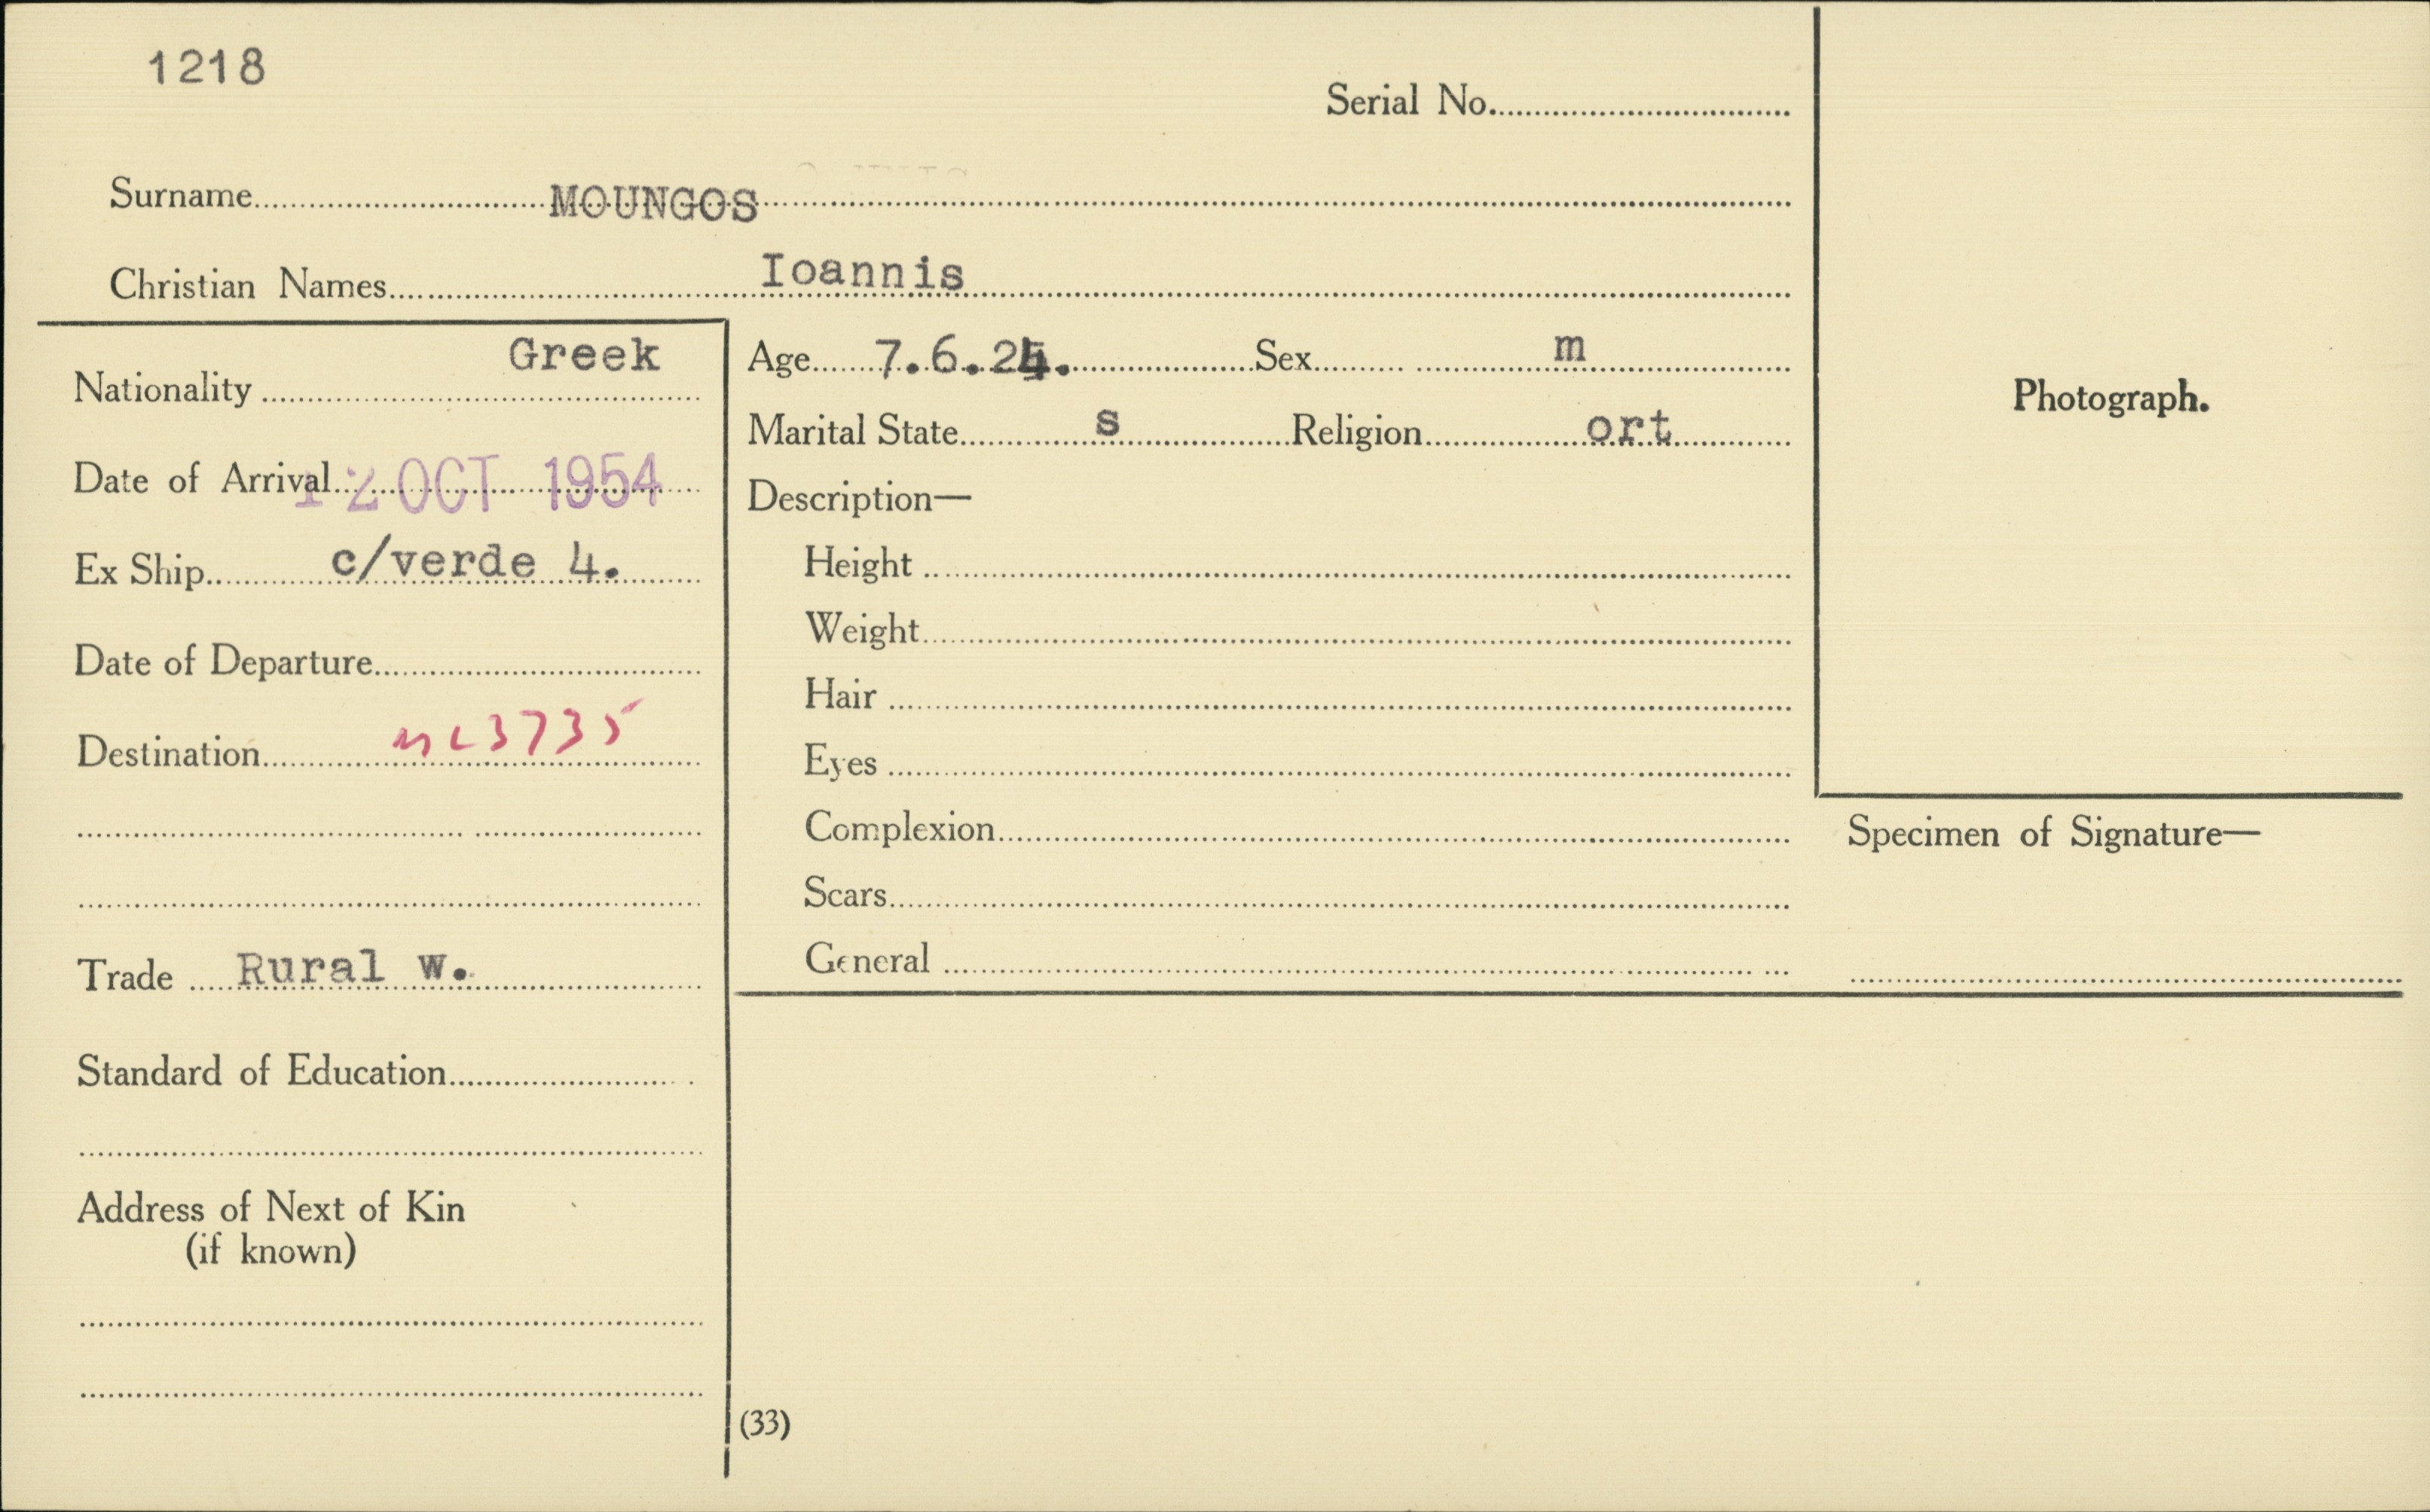 1218
Serial No.
Surname MOUNGOS
Christian Names Ioannis
Nationality Greek
Date of Arrival 12 OCT 1954
Ex Ship c/verde 4.
Date of Departure
Destination
Trade Rural w.
Standard of Education
Address of Next of Kin
(if known)
Age 7.6. Sex m
Marital State s Religion ort
Description—
Height
Weight
Hair
Eyes
Complexion
Scars
General
(33)
Photograph.
Specimen of Signature—